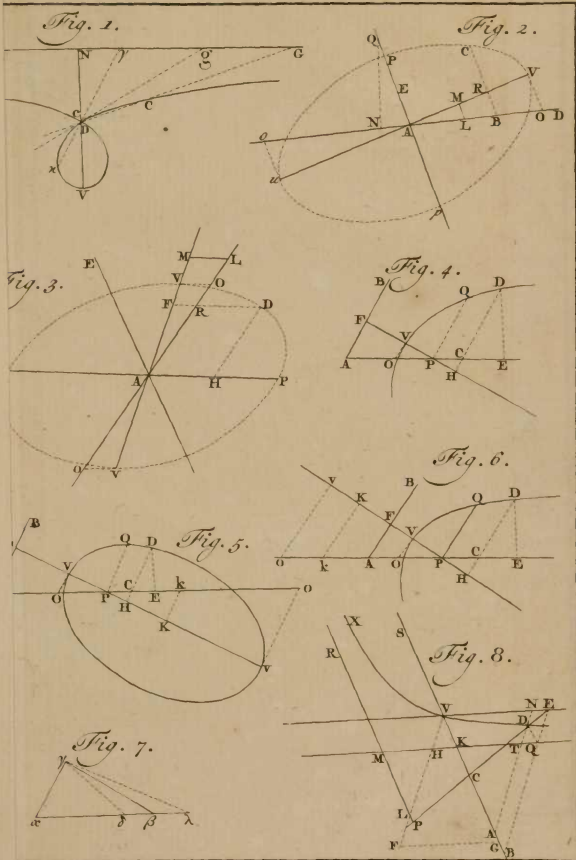 Fig. 1.
N γ g G
c C
D
x
V
Fig. 2.
Q
P C V
E R
M
N L B O D
A
o
u
p
Fig. 3.
E M L
V O
F R D
A H P
O V
Fig. 4.
B Q D
F V
A O P C E
H
Fig. 5.
B
Q D
V
O P C E k o
H
K
v
Fig. 6.
v K B Q D
F V
o k A O P C E
H
Fig. 7.
γ
α δ β λ
Fig. 8.
X S
R
V N E
D
M H K T Q
C
L P
A
F G B